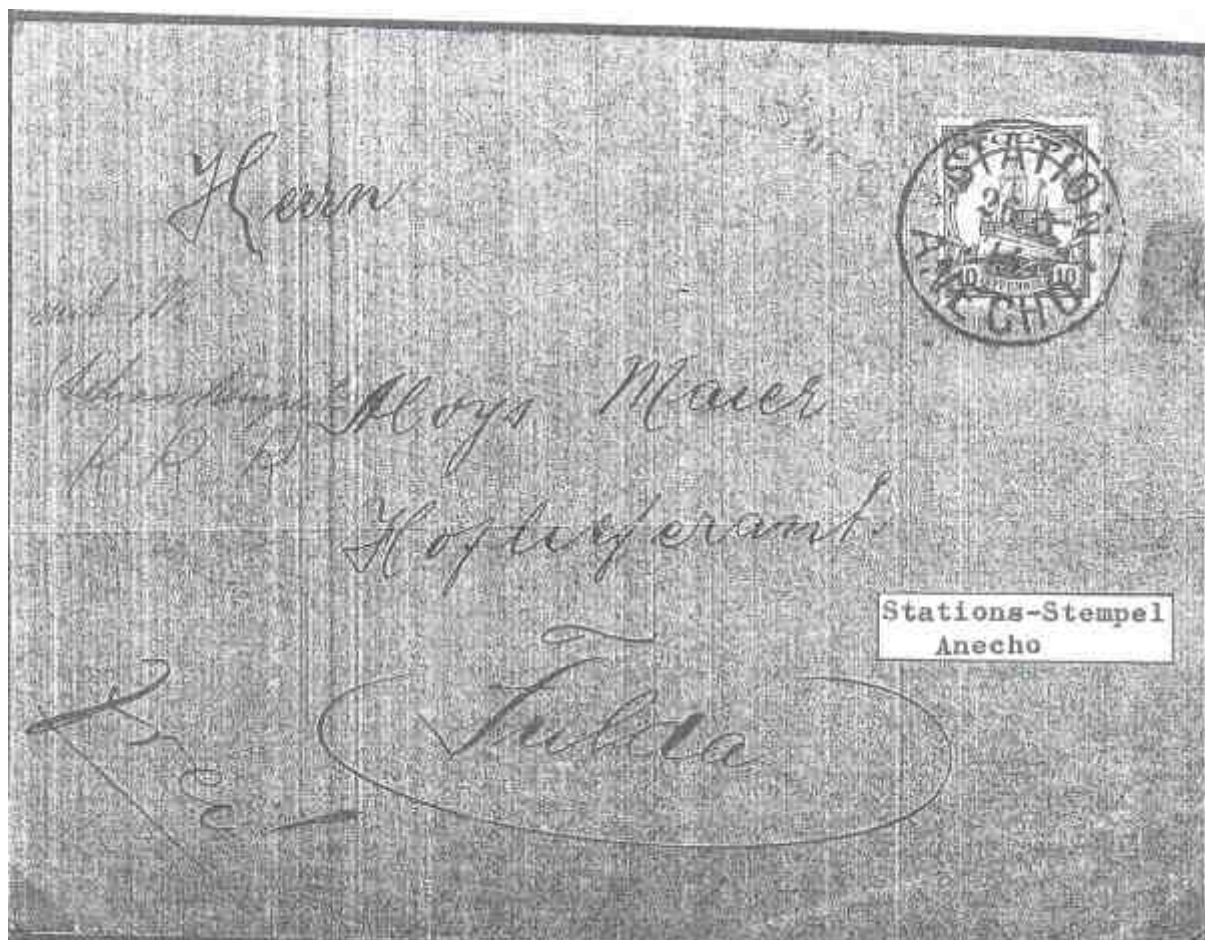 Herrn
STATION
ANECHO
10 10
Aloys Maier
Hoflieferamt.
Fulda
Stations-Stempel
Anecho